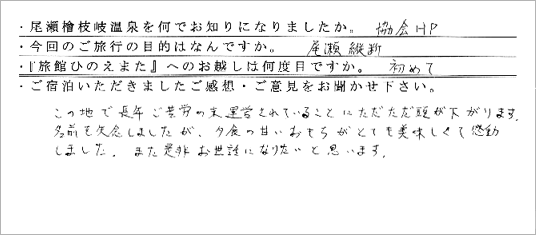 ・尾瀬檜枝岐温泉を何でお知りになりましたか。 協会HP
・今回のご旅行の目的はなんですか。 尾瀬縦断
・『旅館ひのえまた』へのお越しは何度目ですか。 初めて
・ご宿泊いただきましたご感想・ご意見をお聞かせ下さい。
この地で長年ご苦労の末運営されていることにただただ頭が下がります。
名前を失念しましたが、夕食の甘いおもちがとても美味しくて感動
しました。また是非お世話になりたいと思います。